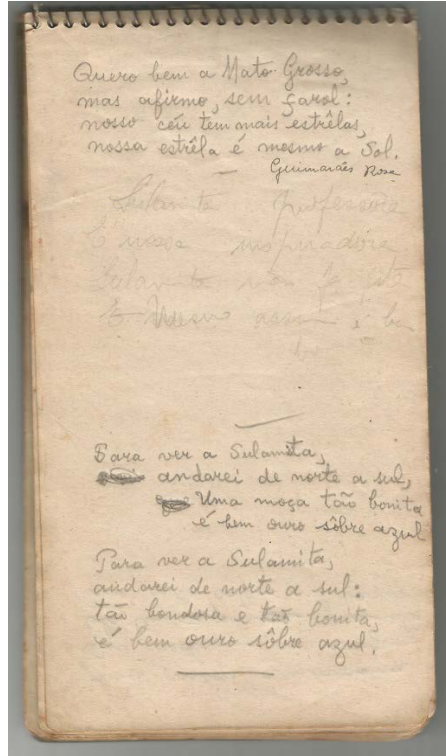 Quero bem a Mato Grosso,
mas afirmo, sem farol:
nosso céu tem mais estrêlas,
nossa estrêla é mesmo a Sol.
Guimarães Rosa
Sulamita professora
É nossa inspiradora
Sulamita
E mesmo assim é
Para ver a Sulamita,
andarei de norte a sul,
Uma moça tão bonita
é bem ouro sôbre azul
Para ver a Sulamita,
andarei de norte a sul:
tão bondosa e tão bonita,
é bem ouro sôbre azul.